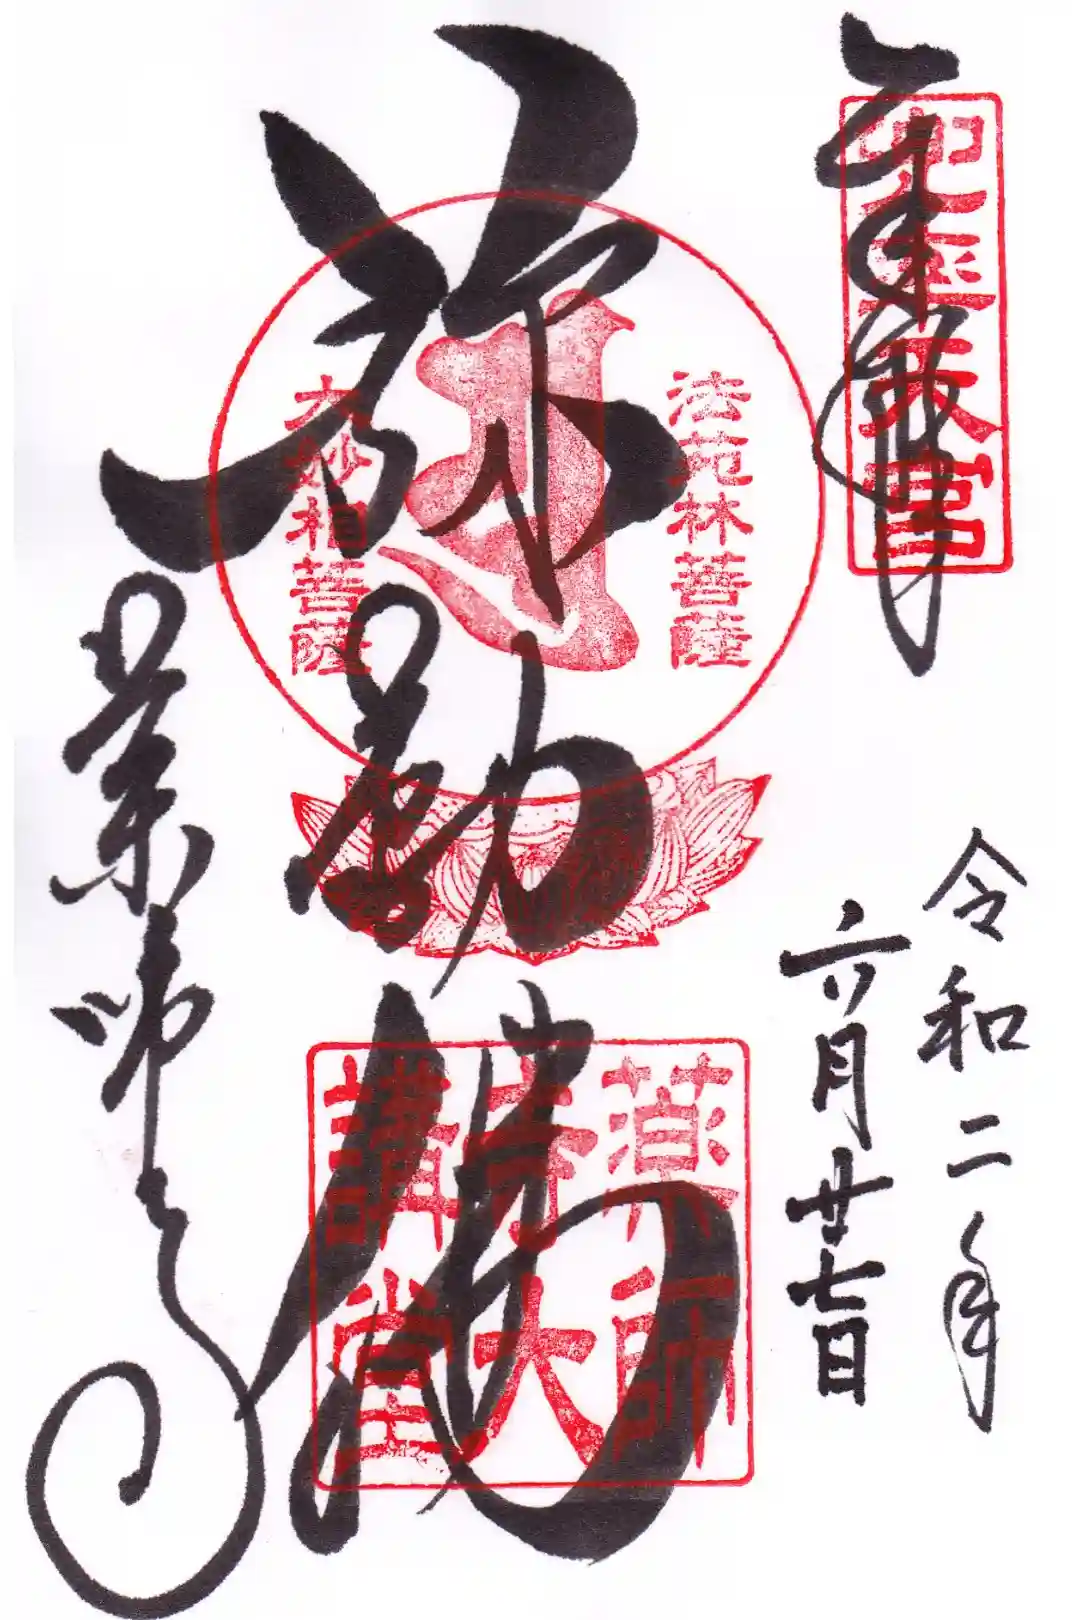 奉拝
兜率天宮
令和二年
六月廿七日
弥勒佛
法苑林菩薩
大妙相菩薩
薬師寺大講堂
薬師寺